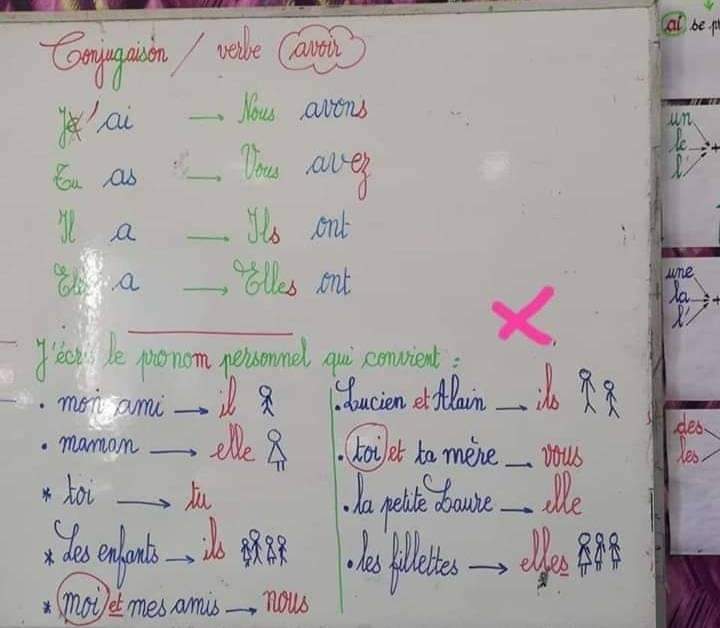 Conjugaison / verbe avoir
Je' ai → Nous avons
Tu as → Vous avez
Il a → Ils ont
Elle a → Elles ont
J'écris le pronom personnel qui convient :
• mon ami → il
• maman → elle
* toi → tu
* Les enfants → ils
* moi et mes amis → nous
• Lucien et Alain → ils
• toi et ta mère → vous
• la petite Laure → elle
• les fillettes → elles
ai se
un
le
l'
une
la
l'
des
les